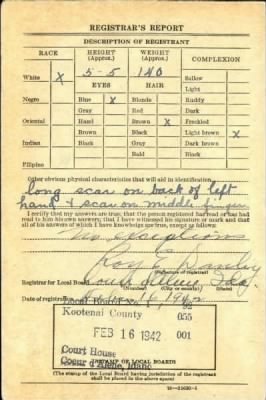 REGISTRAR'S REPORT
DESCRIPTION OF REGISTRANT
RACE HEIGHT (Approx.) WEIGHT (Approx.) COMPLEXION
White X 5-5 140 Sallow
EYES HAIR Light
Negro Blue X Blonde Ruddy
Gray Red Dark
Oriental Hazel Brown X Freckled
Brown Black Light brown X
Indian Black Gray Dark brown
Bald Black
Filipino
Other obvious physical characteristics that will aid in identification
long scar on back of left
hand & scar on middle finger
I certify that my answers are true; that the person registered has read or has had
read to him his own answers; that I have witnessed his signature or mark and that
all of his answers of which I have knowledge are true, except as follows:
No exceptions
Roy E
(Signature of registrar)
Registrar for Local Board
Date of registration 16 1942
Local Board No. 92
Kootenai County 055
FEB 16 1942 001
Court House
Coeur d'Alene, Idaho
(STAMP OF LOCAL BOARD)
(The stamp of the Local Board having jurisdiction of the registrant
shall be placed in the above space)